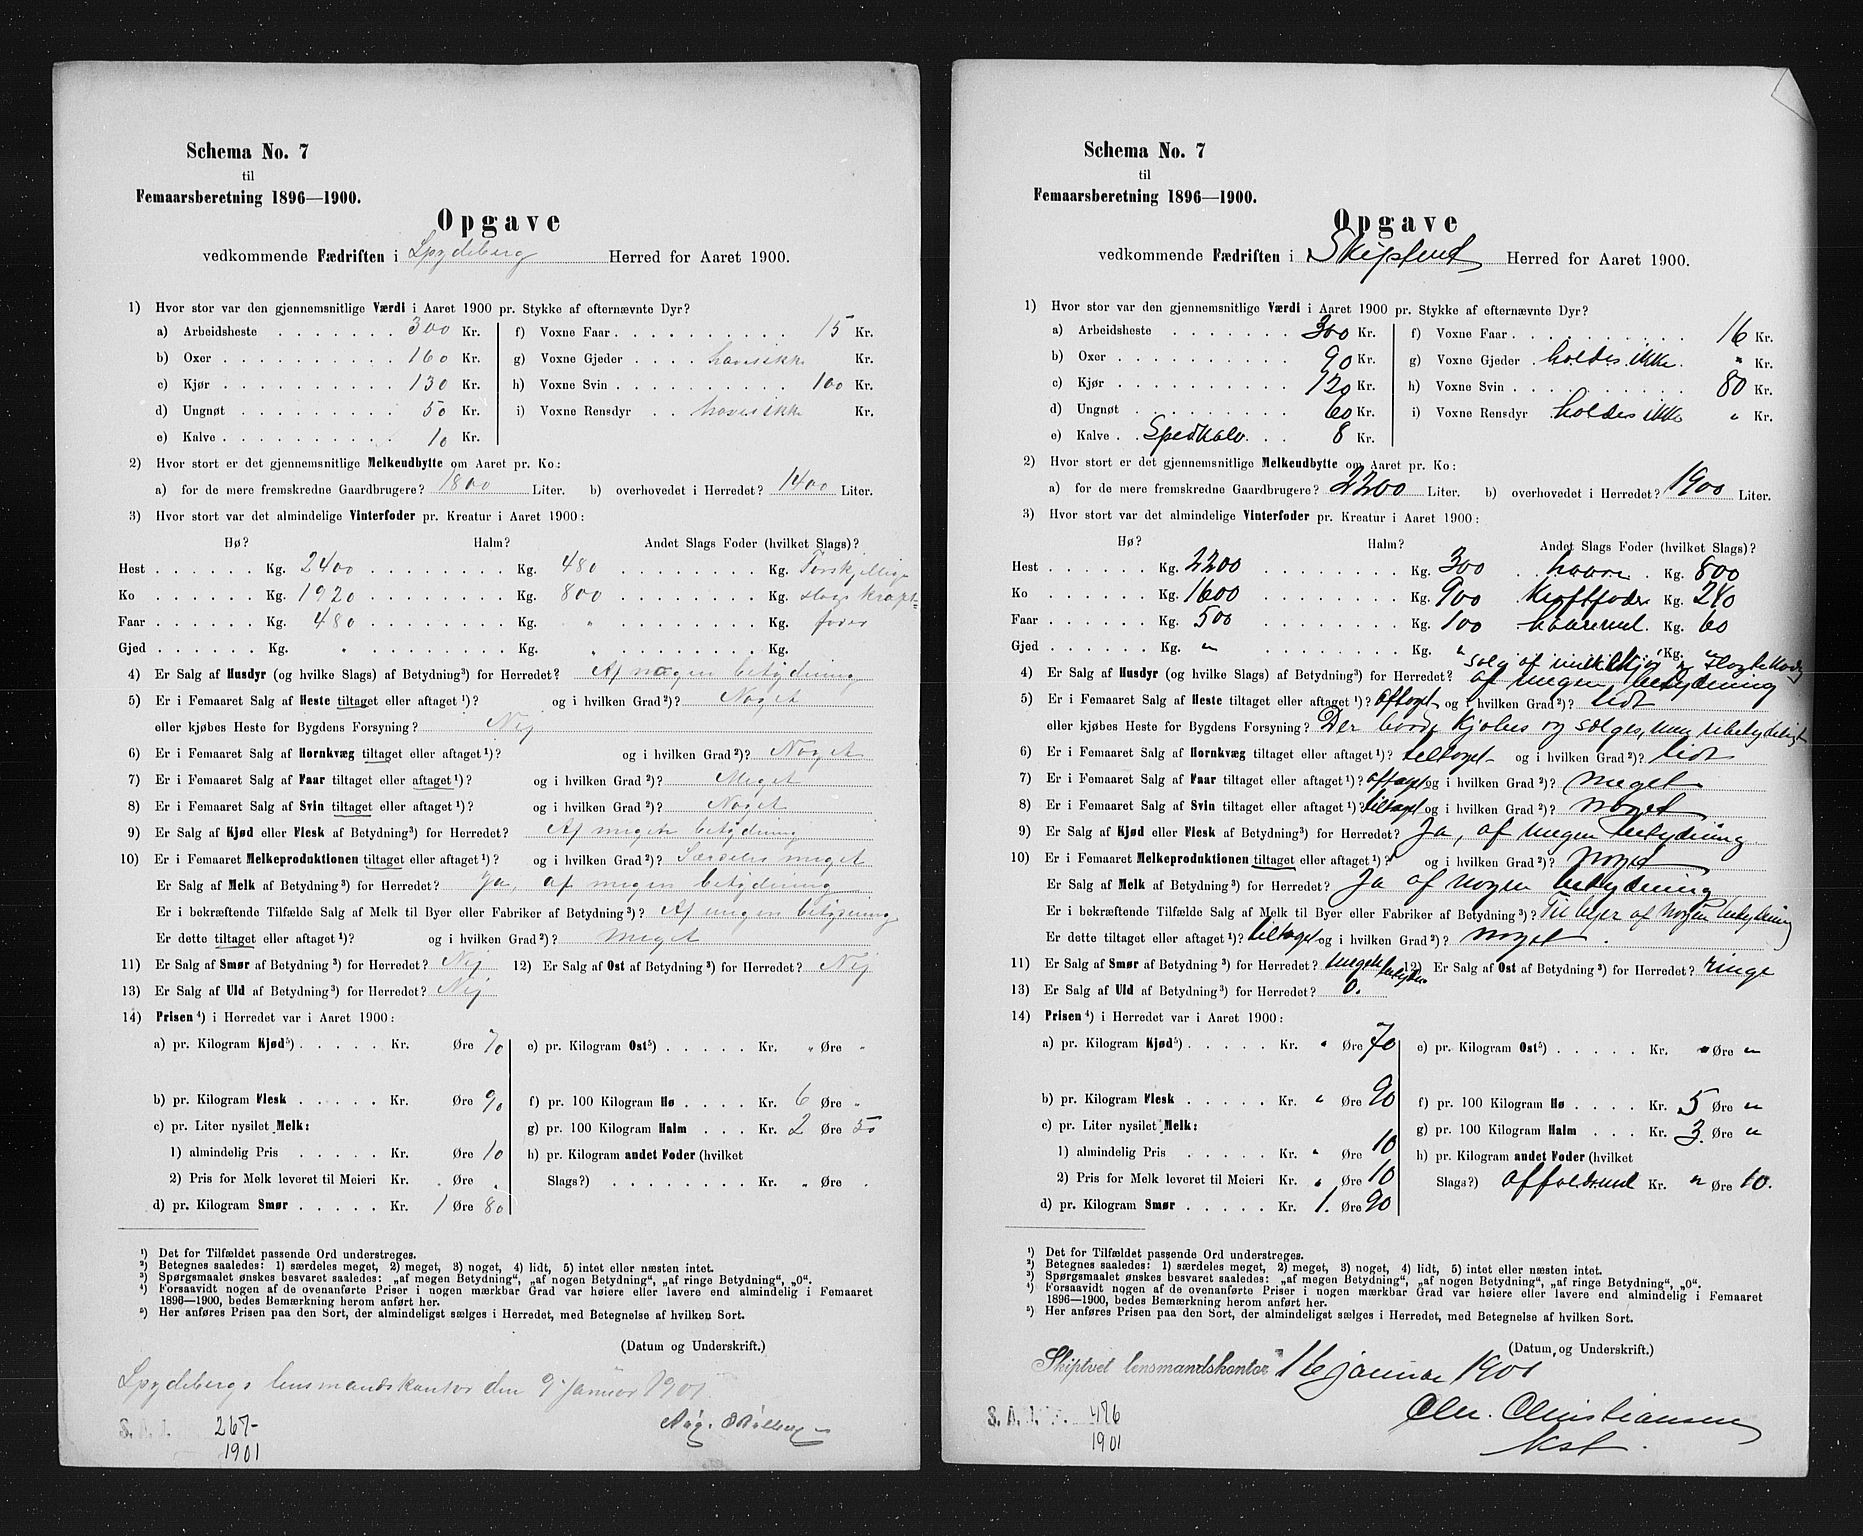 Schema No. 7
til
Femaarsberetning 1896—1900.
Opgave
vedkommende Fædriften i Spydeberg Herred for Aaret 1900.
1) Hvor stor var den gjennemsnitlige Værdi i Aaret 1900 pr. Stykke af efternævnte Dyr?
a) Arbeidsheste 300 Kr.
b) Oxer 160 Kr.
c) Kjør 130 Kr.
d) Ungnøt 50 Kr.
e) Kalve 10 Kr.
f) Voxne Faar 15 Kr.
g) Voxne Gjeder haves ikke Kr.
h) Voxne Svin 100 Kr.
i) Voxne Rensdyr haves ikke Kr.
2) Hvor stort er det gjennemsnitlige Melkeudbytte om Aaret pr. Ko:
a) for de mere fremskredne Gaardbrugere? 1800 Liter. b) overhovedet i Herredet? 1400 Liter.
3) Hvor stort var det almindelige Vinterfoder pr. Kreatur i Aaret 1900:
Hø? Halm? Andet Slags Foder (hvilket Slags)?
Hest Kg. 2400 Kg. 480 Kg. Forskjellige
Ko Kg. 1920 Kg. 800 Kg. slags kraft=
Faar Kg. 480 Kg. " Kg. foder
Gjed Kg. " Kg. " Kg.
4) Er Salg af Husdyr (og hvilke Slags) af Betydning³) for Herredet? Af megen betydning
5) Er i Femaaret Salg af Heste tiltaget eller aftaget¹)? og i hvilken Grad²)? Noget
eller kjøbes Heste for Bygdens Forsyning? Nej
6) Er i Femaaret Salg af Hornkvæg tiltaget eller aftaget¹)? og i hvilken Grad²)? Noget
7) Er i Femaaret Salg af Faar tiltaget eller aftaget¹)? og i hvilken Grad²)? Meget
8) Er i Femaaret Salg af Svin tiltaget eller aftaget¹)? og i hvilken Grad²)? Noget
9) Er Salg af Kjød eller Flesk af Betydning³) for Herredet? Af megen betydning
10) Er i Femaaret Melkeproduktionen tiltaget eller aftaget¹)? og i hvilken Grad²)? Særdeles meget
Er Salg af Melk af Betydning³) for Herredet? Ja, af megen betydning
Er i bekræftende Tilfælde Salg af Melk til Byer eller Fabriker af Betydning³)? Af megen betydning
Er dette tiltaget eller aftaget¹)? og i hvilken Grad²)? meget
11) Er Salg af Smør af Betydning³) for Herredet? Nej 12) Er Salg af Ost af Betydning³) for Herredet? Nej
13) Er Salg af Uld af Betydning³) for Herredet? Nej
14) Prisen⁴) i Herredet var i Aaret 1900:
a) pr. Kilogram Kjød⁵) Kr. Øre 70
b) pr. Kilogram Flesk Kr. Øre 90
c) pr. Liter nysilet Melk:
1) almindelig Pris Kr. Øre 10
2) Pris for Melk leveret til Meieri Kr. " Øre "
d) pr. Kilogram Smør Kr. 1 Øre 80
e) pr. Kilogram Ost⁵) Kr. " Øre "
f) pr. 100 Kilogram Hø Kr. 6 Øre "
g) pr. 100 Kilogram Halm Kr. 2 Øre 50
h) pr. Kilogram andet Foder (hvilket
Slags?) Kr. " Øre "
¹) Det for Tilfældet passende Ord understreges.
²) Betegnes saaledes: 1) særdeles meget, 2) meget, 3) noget, 4) lidt, 5) intet eller næsten intet.
³) Spørgsmaalet ønskes besvaret saaledes: „af megen Betydning“, „af nogen Betydning“, „af ringe Betydning“, „0“.
⁴) Forsaavidt nogen af de ovenanførte Priser i nogen mærkbar Grad var høiere eller lavere end almindelig i Femaaret
1896—1900, bedes Bemærkning herom anført her.
⁵) Her anføres Prisen paa den Sort, der almindeligst sælges i Herredet, med Betegnelse af hvilken Sort.
(Datum og Underskrift.)
Spydebergs lensmandskontor den 9 januar 1901
Aug.
S. A. J. 267-
1901
Schema No. 7
til
Femaarsberetning 1896—1900.
Opgave
vedkommende Fædriften i Skiptvet Herred for Aaret 1900.
1) Hvor stor var den gjennemsnitlige Værdi i Aaret 1900 pr. Stykke af efternævnte Dyr?
a) Arbeidsheste 300 Kr.
b) Oxer 90 Kr.
c) Kjør 120 Kr.
d) Ungnøt 60 Kr.
e) Kalve Spedkalv 8 Kr.
f) Voxne Faar 16 Kr.
g) Voxne Gjeder holdes ikke " Kr.
h) Voxne Svin 80 Kr.
i) Voxne Rensdyr holdes ikke " Kr.
2) Hvor stort er det gjennemsnitlige Melkeudbytte om Aaret pr. Ko:
a) for de mere fremskredne Gaardbrugere? 2200 Liter. b) overhovedet i Herredet? 1900 Liter.
3) Hvor stort var det almindelige Vinterfoder pr. Kreatur i Aaret 1900:
Hø? Halm? Andet Slags Foder (hvilket Slags)?
Hest Kg. 2200 Kg. 300 havre Kg. 800
Ko Kg. 1600 Kg. 900 Kraftfoder Kg. 240
Faar Kg. 500 Kg. 100 havremel Kg. 60
Gjed Kg. " Kg. " Kg. "
4) Er Salg af Husdyr (og hvilke Slags) af Betydning³) for Herredet? Salg af melkekjør og
af megen betydning
5) Er i Femaaret Salg af Heste tiltaget eller aftaget¹)? aftaget og i hvilken Grad²)? lidt
eller kjøbes Heste for Bygdens Forsyning? Der baade kjøbes og sælges, men ubetydeligt
6) Er i Femaaret Salg af Hornkvæg tiltaget eller aftaget¹)? tiltaget og i hvilken Grad²)? lidt
7) Er i Femaaret Salg af Faar tiltaget eller aftaget¹)? aftaget og i hvilken Grad²)? meget
8) Er i Femaaret Salg af Svin tiltaget eller aftaget¹)? tiltaget og i hvilken Grad²)? noget
9) Er Salg af Kjød eller Flesk af Betydning³) for Herredet? Ja, af megen betydning
10) Er i Femaaret Melkeproduktionen tiltaget eller aftaget¹)? og i hvilken Grad²)? noget
Er Salg af Melk af Betydning³) for Herredet? Ja af nogen betydning
Er i bekræftende Tilfælde Salg af Melk til Byer eller Fabriker af Betydning³)? Til byer af nogen betydning
Er dette tiltaget eller aftaget¹)? tiltaget og i hvilken Grad²)? noget.
11) Er Salg af Smør af Betydning³) for Herredet? megen betydn. 12) Er Salg af Ost af Betydning³) for Herredet? ringe
13) Er Salg af Uld af Betydning³) for Herredet? 0.
14) Prisen⁴) i Herredet var i Aaret 1900:
a) pr. Kilogram Kjød⁵) Kr. " Øre 70
b) pr. Kilogram Flesk Kr. " Øre 90
c) pr. Liter nysilet Melk:
1) almindelig Pris Kr. " Øre 10
2) Pris for Melk leveret til Meieri Kr. " Øre 10
d) pr. Kilogram Smør Kr. 1. Øre 90
e) pr. Kilogram Ost⁵) Kr. " Øre "
f) pr. 100 Kilogram Hø Kr. 5 Øre "
g) pr. 100 Kilogram Halm Kr. 3. Øre "
h) pr. Kilogram andet Foder (hvilket
Slags?) affaldsmel Kr. " Øre 10.
¹) Det for Tilfældet passende Ord understreges.
²) Betegnes saaledes: 1) særdeles meget, 2) meget, 3) noget, 4) lidt, 5) intet eller næsten intet.
³) Spørgsmaalet ønskes besvaret saaledes: „af megen Betydning“, „af nogen Betydning“, „af ringe Betydning“, „0“.
⁴) Forsaavidt nogen af de ovenanførte Priser i nogen mærkbar Grad var høiere eller lavere end almindelig i Femaaret
1896—1900, bedes Bemærkning herom anført her.
⁵) Her anføres Prisen paa den Sort, der almindeligst sælges i Herredet, med Betegnelse af hvilken Sort.
(Datum og Underskrift.)
Skiptvet lensmandskontor 16 januar 1901
Chr. Christiansen
Kst.
S. A. J. 476
1901